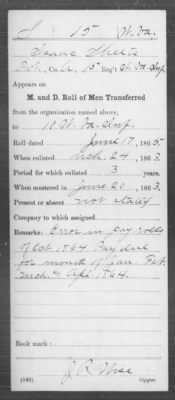 S 15 W. Va.
Isaac Sheets
Co. A, 15 Reg't W. Va. Inf.
Appears on
M. and D. Roll of Men Transferred
from the organization named above,
to 10 W. Va. Inf.
Roll dated June 17, 1865
When enlisted Mch. 24, 1863
Period for which enlisted 3 years.
When mustered in June 20, 1863
Present or absent not stated
Company to which assigned
Remarks: Error in pay rolls
of Oct 1864 Pay due
for months of Jan. Feb.
Mch. & Apl 1864.
Book mark:
(646) Copyist.